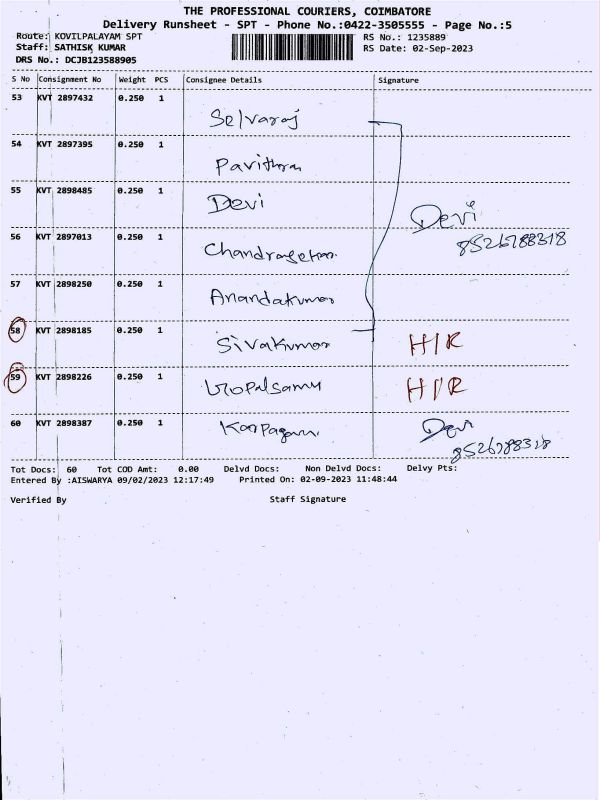 THE PROFESSIONAL COURIERS, COIMBATORE
Delivery Runsheet - SPT - Phone No.:0422-3505555 - Page No.:5
Route: KOVILPALAYAM SPT RS No.: 1235889
Staff: SATHISK KUMAR RS Date: 02-Sep-2023
DRS No.: DCJB123588905
S No Consignment No Weight PCS Consignee Details Signature
53 KVT 2897432 0.250 1
Selvaraj
54 KVT 2897395 0.250 1
Pavithra
55 KVT 2898485 0.250 1
Devi Devi
8526788318
56 KVT 2897013 0.250 1
Chandrasekar
57 KVT 2898250 0.250 1
Anandakumar
58 KVT 2898185 0.250 1
Sivakumar H/R
59 KVT 2898226 0.250 1
Gopalsamy H/R
60 KVT 2898387 0.250 1
Karpagam Devi
8526788318
Tot Docs: 60 Tot COD Amt: 0.00 Delvd Docs: Non Delvd Docs: Delvy Pts:
Entered By :AISWARYA 09/02/2023 12:17:49 Printed On: 02-09-2023 11:48:44
Verified By Staff Signature